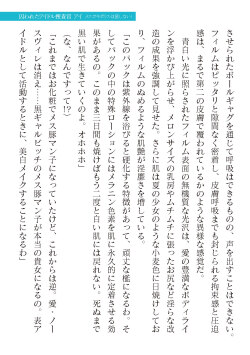 囚われたアイドル捜査官 アイ
させられたボールギャグを通じて呼吸はできるものの、声を出すことはできない。
フィルムはピッタリと隙間なく密着し、皮膚呼吸までも封じられる拘束感と圧迫
感は、まるで第二の皮膚で覆われるような異様な感覚だ。
青白い光に照らされたフィルム表面の無機質な光沢は、愛の豊満なボディライ
ンを浮かび上がらせ、メロンサイズの乳房やムチムチに張ったお尻など淫らな改
造の成果を強調して見せた。さらに肌は夏の少女のように小麦色に日焼けしてお
り、フィルムのぬめるような肌艶が淫靡さを増している。
「このパックは紫外線を浴びると硬化する特徴があって、頑丈な檻になるわ。そ
してパックの中の特殊ローションにはメラニン色素を肌に永久的に定着させる効
果があるの。このまま三日間も焼けばもう二度と白い肌には戻れない。死ぬまで
黒い肌で生きていくのよ、オホホホ」
(な、なんですって!)
「これまではお化粧でメス豚マン子になっていたけど、これからは逆、愛・ノー
スヴィレは消え……黒ギャルビッチのメス豚マン子が本当の貴女になるの。表ア
イドルとして活動するときに、美白メイクすることになるわ」